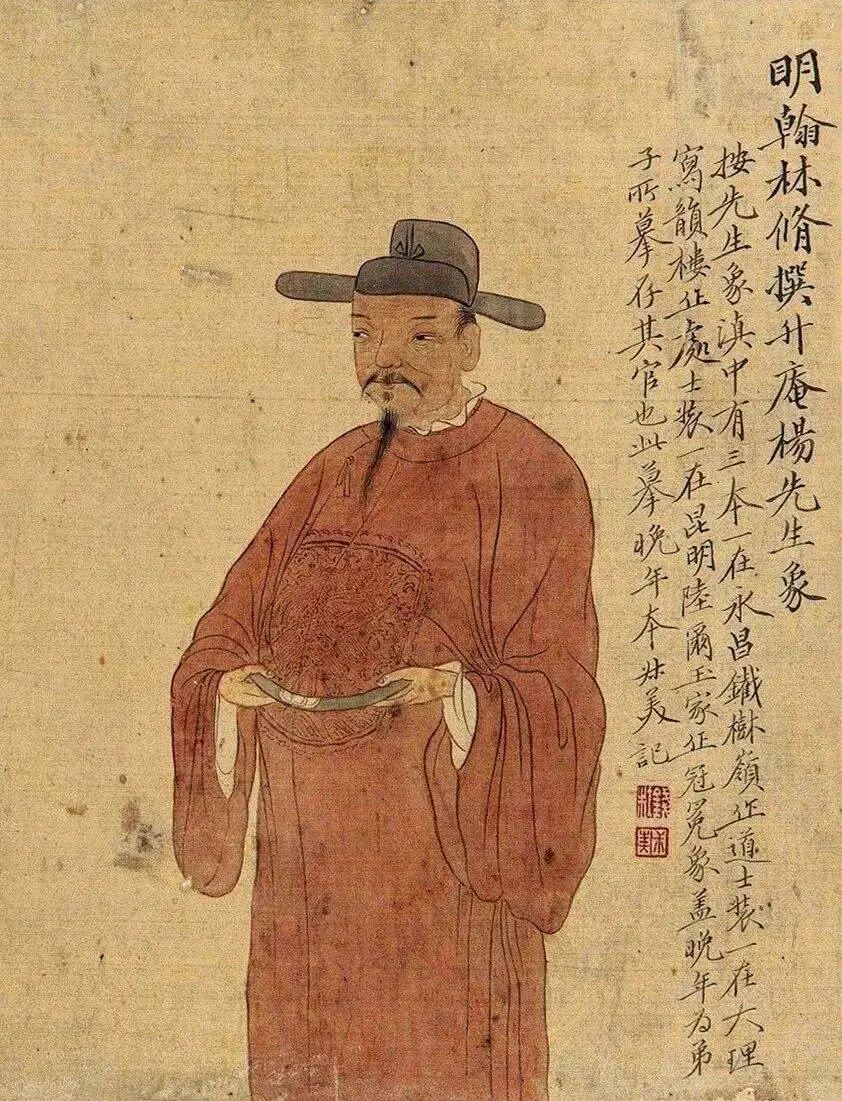 明翰林脩撰升庵楊先生象
按先生象滇中有三本一在永昌鐵樹嶺作道士裝一在大理
寫韻樓作處士裝一在昆明陸爾玉家作冠冕象蓋晚年為弟
子所摹存其官也此摹晚年本尗美記
錢杜
尗美